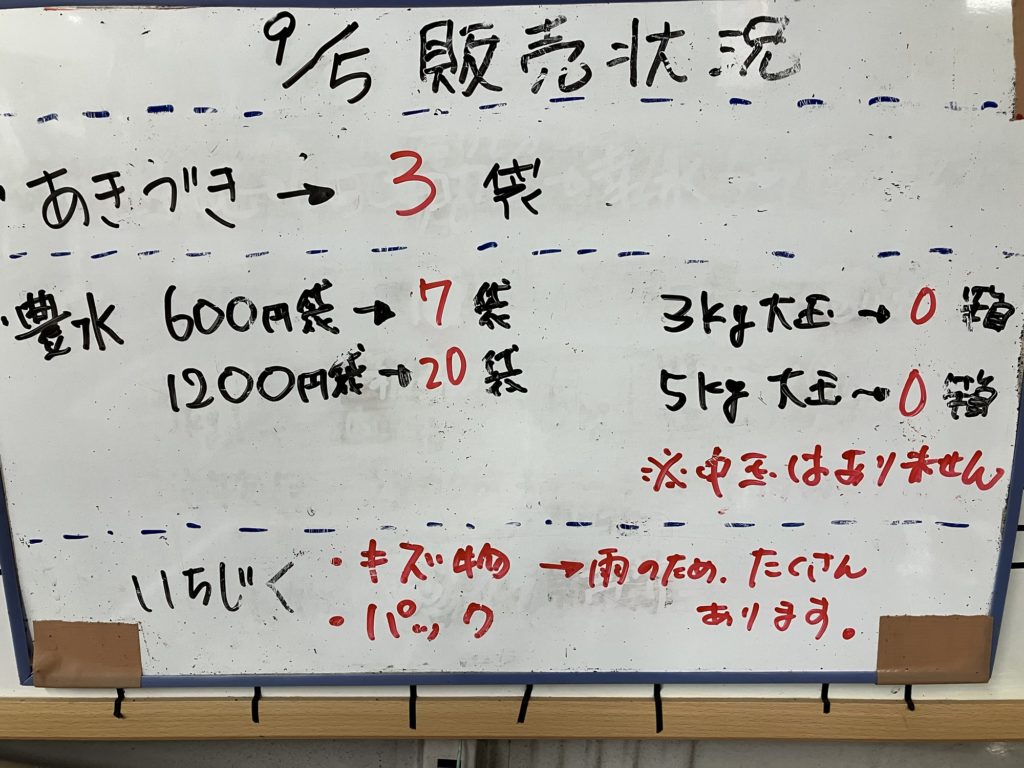 9/5 販売状況
あきづき → 3 袋
・豊水 600円袋 → 7 袋
1200円袋 → 20 袋
3kg 大玉 → 0 箱
5kg 大玉 → 0 箱
※中玉はありません
いちじく
・キズ物 → 雨のため、たくさん
・パック
あります。